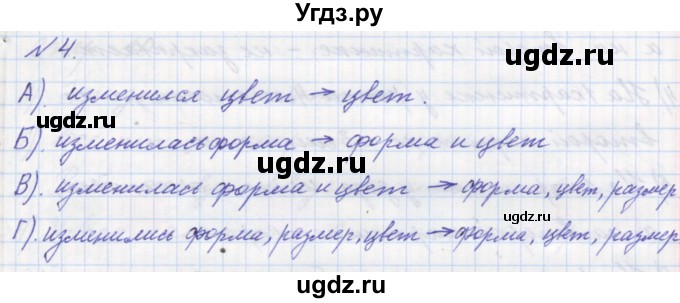 Угдз.ру
№ 4.
А). изменился цвет → цвет.
ugdz.ru
Б). изменилась форма → форма и цвет
ugdz.ru ugdz.ru
В). изменилась форма и цвет → форма, цвет, размер
ugdz.ru
Г). изменились форма, размер, цвет → форма, цвет, размер
ugdz.ru ugdz.ru